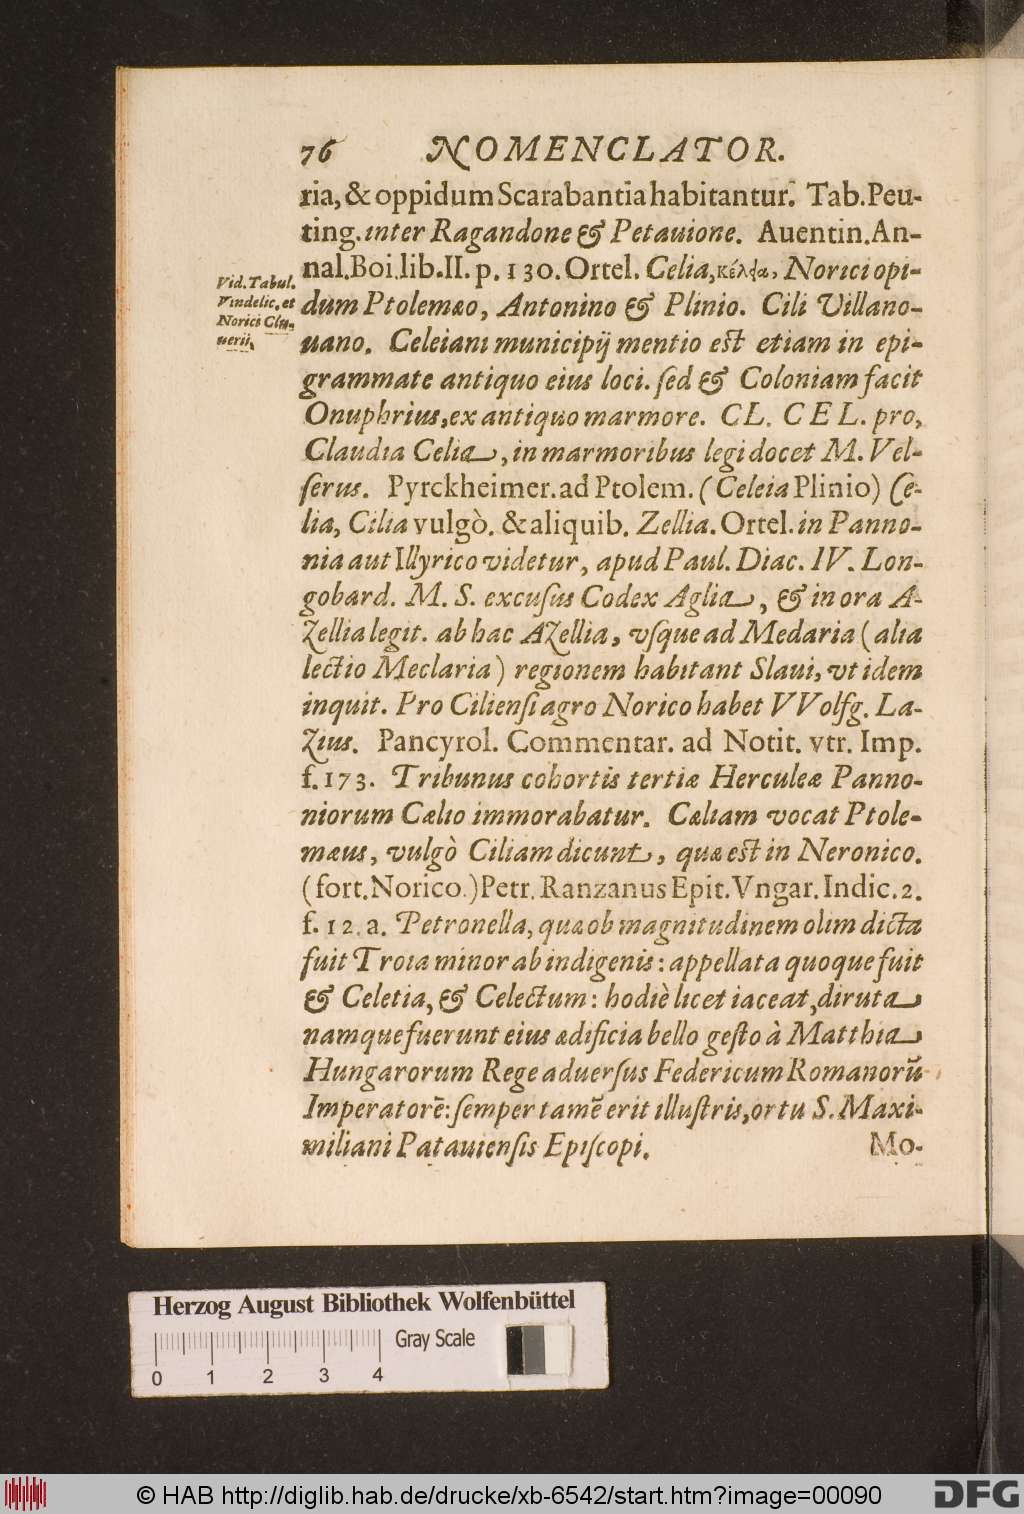 76 NOMENCLATOR.
ria, & oppidum Scarabantia habitantur. Tab. Peu-
ting. inter Ragandone & Petauione. Auentin. An-
nal. Boi. lib. II. p. 130. Ortel. Celia, Norici opi-
dum Ptolemæo, Antonino & Plinio. Cili Villano-
uano. Celeiani municipij mentio est etiam in epi-
grammate antiquo eius loci. sed & Coloniam facit
Onuphrius, ex antiquo marmore. CL. CEL. pro,
Claudia Celia, in marmoribus legi docet M. Vel-
serus. Pyrckheimer. ad Ptolem. (Celeia Plinio) Ce-
lia, Cilia vulgò. & aliquib. Zellia. Ortel. in Panno-
nia aut Illyrico videtur, apud Paul. Diac. IV. Lon-
gobard. M. S. excusus Codex Aglia, & in ora A-
Zellia legit. ab hac AZellia, vsque ad Medaria (alia
lectio Meclaria) regionem habitant Slaui, vt idem
inquit. Pro Ciliensi agro Norico habet VVolfg. La-
Zius. Pancyrol. Commentar. ad Notit. vtr. Imp.
f. 173. Tribunus cohortis tertiæ Herculeæ Panno-
niorum Cælio immorabatur. Cæliam vocat Ptole-
mæus, vulgò Ciliam dicunt, quæ est in Neronico.
(fort. Norico.) Petr. Ranzanus Epit. Vngar. Indic. 2.
f. 12. a. Petronella, quæ ob magnitudinem olim dicta
fuit Troia minor ab indigenis: appellata quoque fuit
& Celetia, & Celectum: hodiè licet iaceat, diruta
namque fuerunt eius ædificia bello gesto à Matthia
Hungarorum Rege aduersus Federicum Romanorũ
Imperatorẽ: semper tamẽ erit illustris, ortu S. Maxi-
miliani Patauiensis Episcopi.
Mo-
Vid. Tabul.
Vindelic. et
Norici Clu-
uerij.
Herzog August Bibliothek Wolfenbüttel
Gray Scale
0 1 2 3 4
© HAB http://diglib.hab.de/drucke/xb-6542/start.htm?image=00090
DFG